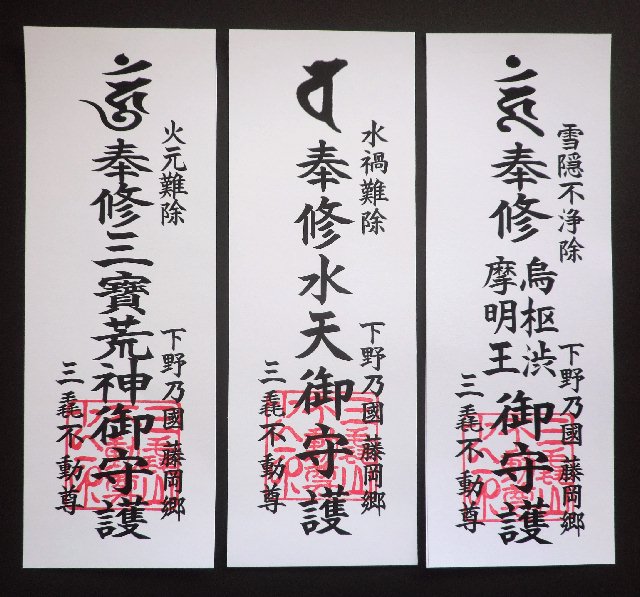 雪隠不浄除
奉修烏枢渋摩明王御守護
下野乃國 藤岡郷
三毳不動尊
水禍難除
奉修水天御守護
下野乃國 藤岡郷
三毳不動尊
火元難除
奉修三寶荒神御守護
下野乃國 藤岡郷
三毳不動尊